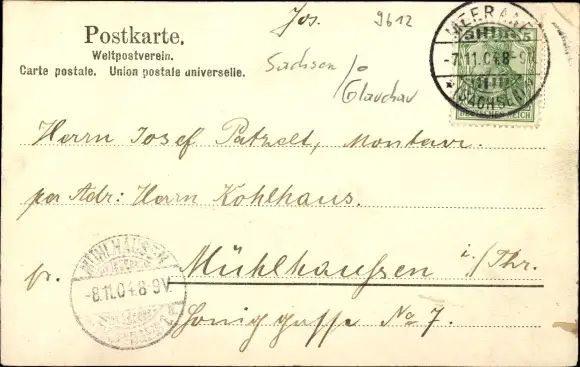 Jos. 9612
Postkarte.
Weltpostverein.
Carte postale. Union postale universelle.
Sachsen
Glauchau
MEERANE
-7.11.04.8-9V.
* (SACHSEN)
5
DEUTSCHES REICH
Herrn Josef Patzelt, Monteur.
per Adr: Herrn Kohlhaus.
MÜHLHAUSEN
-8.11.04.8-9V.
fr. Mühlhaußen i./Thr.
Honiggasse No 7.